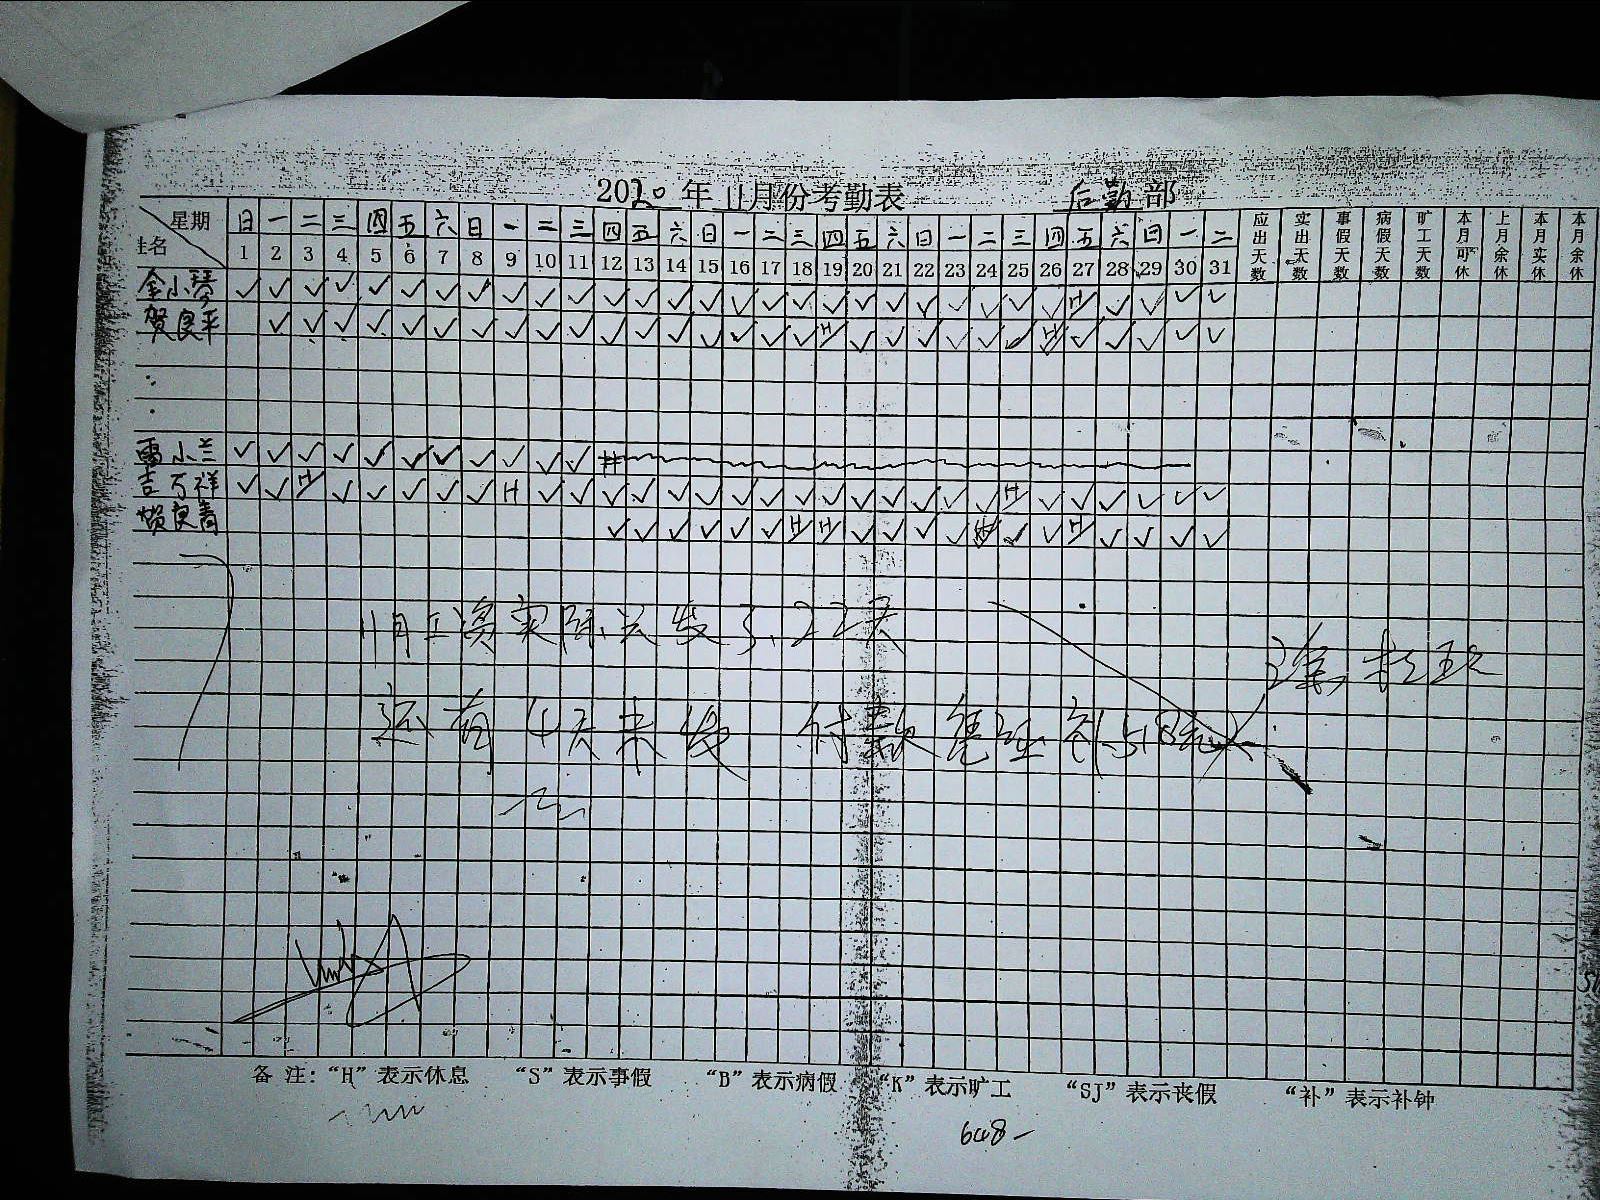 2020年 11月份考勤表 后勤部
星期 日 一 二 三 四 五 六 日 一 二 三 四 五 六 日 一 二 三 四 五 六 日 一 二 三 四 五 六 日 一 二 应出天数 实出天数 事假天数 病假天数 旷工天数 本月可休 上月余休 本月实休 本月余休
姓名 1 2 3 4 5 6 7 8 9 10 11 12 13 14 15 16 17 18 19 20 21 22 23 24 25 26 27 28 29 30 31
金小琴 ✓ ✓ ✓ ✓ ✓ ✓ ✓ ✓ ✓ ✓ ✓ ✓ ✓ ✓ ✓ ✓ ✓ ✓ ✓ ✓ ✓ ✓ ✓ ✓ ✓ ✓ H ✓ ✓ ✓ ✓
贺良平 ✓ ✓ ✓ ✓ ✓ ✓ ✓ ✓ ✓ ✓ ✓ ✓ ✓ ✓ ✓ ✓ ✓ H ✓ ✓ ✓ ✓ ✓ ✓ H ✓ ✓ ✓ ✓ ✓
雷小兰 ✓ ✓ ✓ ✓ ✓ ✓ ✓ ✓ ✓ ✓ ✓
吉万祥 ✓ ✓ H ✓ ✓ ✓ ✓ ✓ H ✓ ✓ ✓ ✓ ✓ ✓ ✓ ✓ ✓ ✓ ✓ ✓ ✓ ✓ ✓ H ✓ ✓ ✓ ✓ ✓ ✓
赖良青 ✓ ✓ ✓ ✓ ✓ ✓ H H ✓ ✓ ✓ ✓ ✓ ✓ H ✓ ✓ ✓ ✓
11月工资实际只发了22天
还有4天未发 付款凭证
备注:“H”表示休息 “S”表示事假 “B”表示病假 “K”表示旷工 “SJ”表示丧假 “补”表示补钟
648-